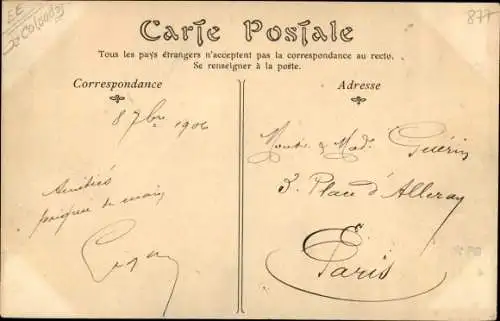 EE
877
Carte Postale
Tous les pays étrangers n'acceptent pas la correspondance au recto.
Se renseigner à la poste.
Correspondance
8 7bre 1906
Amitiés
poignée de main
Adresse
Guérin
3. Place d'Alleray
Paris